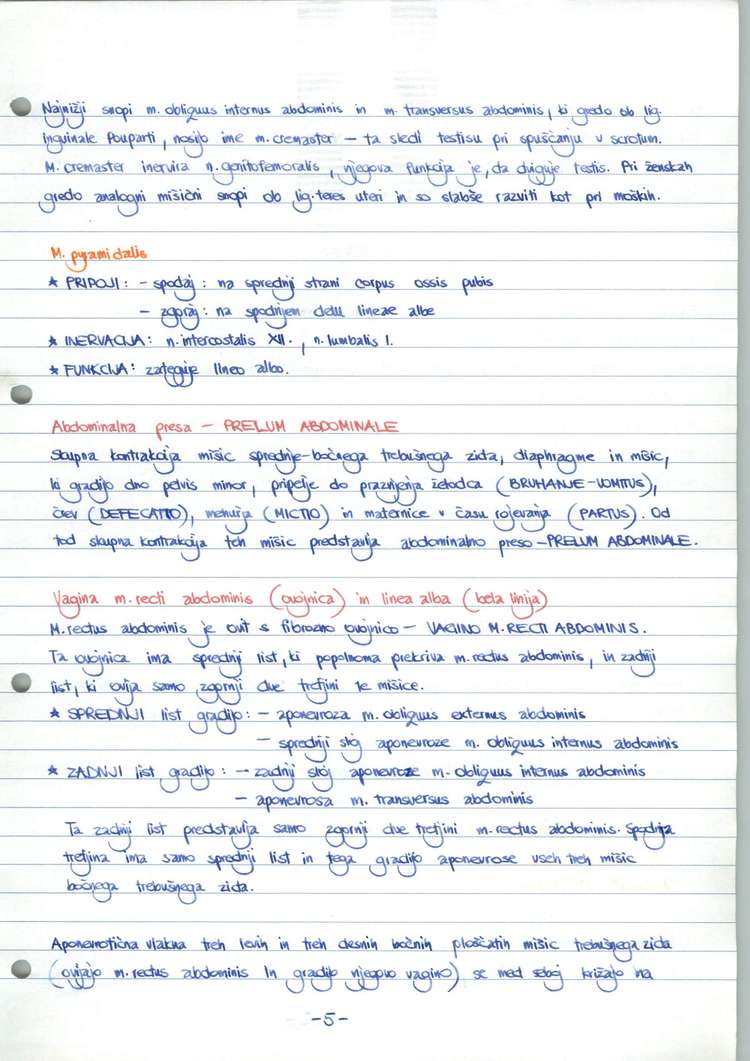 Najnižji snopi m. obliquus internus abdominis in m. transversus abdominis, ki gredo ob lig.
inguinale Pouparti, nosijo ime m. cremaster – ta sledi testisu pri spuščanju v scrotum.
M. cremaster inervira n. genitofemoralis, njegova funkcija je, da dviguje testis. Pri ženskah
gredo analogni mišični snopi ob lig. teres uteri in so slabše razviti kot pri moških.
M. pyramidalis
* PRIPOJI: – spodaj: na sprednji strani corpus ossis pubis
– zgoraj: na spodnjem delu lineae albe
* INERVACIJA: n. intercostalis XII., n. lumbalis I.
* FUNKCIJA: zateguje lineo albo.
Abdominalna presa – PRELUM ABDOMINALE
Skupna kontrakcija mišic sprednje-bočnega trebušnega zida, diaphragme in mišic,
ki gradijo dno pelvis minor, pripelje do praznjenja želodca (BRUHANJE-VOMITUS),
črev (DEFECATIO), mehurja (MICTIO) in maternice v času rojevanja (PARTUS). Od
tod skupna kontrakcija teh mišic predstavlja abdominalno preso – PRELUM ABDOMINALE.
Vagina m. recti abdominis (ovojnica) in linea alba (bela linija)
M. rectus abdominis je ovit s fibrozno ovojnico – VAGINO M. RECTI ABDOMINIS.
Ta ovojnica ima sprednji list, ki popolnoma prekriva m. rectus abdominis, in zadnji
list, ki ovija samo zgornji dve tretjini te mišice.
* SPREDNJI list gradijo: – aponevroza m. obliquus externus abdominis
– sprednji sloj aponevroze m. obliquus internus abdominis
* ZADNJI list gradijo: – zadnji sloj aponevroze m. obliquus internus abdominis
– aponevrosa m. transversus abdominis
Ta zadnji list predstavlja samo zgornji dve tretjini m. rectus abdominis. Spodnja
tretjina ima samo sprednji list in tega gradijo aponevrose vseh treh mišic
bočnega trebušnega zida.
Aponevrotična vlakna treh levih in treh desnih bočnih ploščatih mišic trebušnega zida
(ovijajo m. rectus abdominis in gradijo njegovo vagino) se med seboj križajo na
-5-